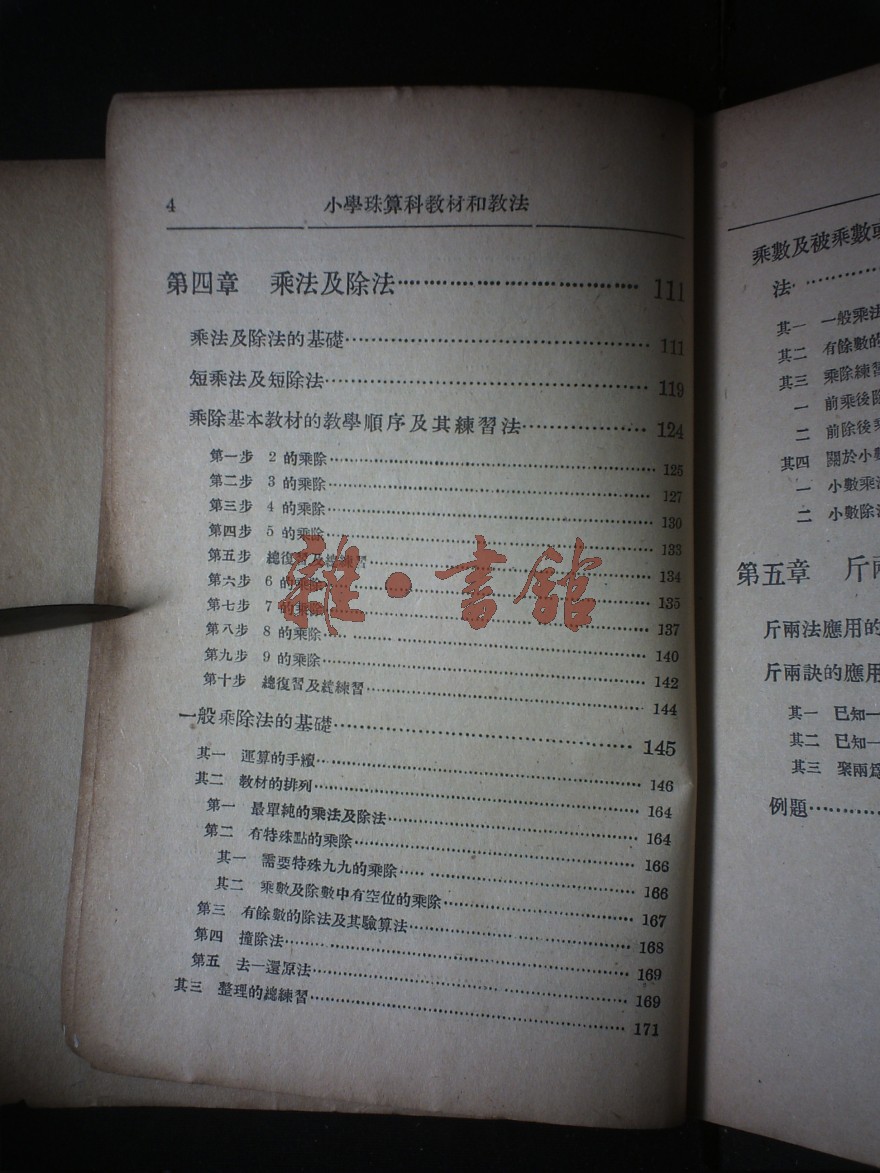 4 小學珠算科敎材和敎法
第四章 乘法及除法 111
乘法及除法的基礎 111
短乘法及短除法 119
乘除基本敎材的敎學順序及其練習法 124
第一步 2 的乘除 125
第二步 3 的乘除 127
第三步 4 的乘除 130
第四步 5 的乘除 133
第五步 總復習及總練習 134
第六步 6 的乘除 135
第七步 7 的乘除 137
第八步 8 的乘除 140
第九步 9 的乘除 142
第十步 總復習及總練習 144
一般乘除法的基礎 145
其一 運算的手續 146
其二 敎材的排列 164
第一 最單純的乘法及除法 164
第二 有特殊點的乘除 166
其一 需要特殊九九的乘除 166
其二 乘數及除數中有空位的乘除 167
第三 有餘數的除法及其驗算法 168
第四 撞除法 169
第五 去一還原法 169
其三 整理的總練習 171
雜·書館
乘數及被乘數
法
其一 一般乘法
其二 有餘數的
其三 乘除練習
一 前乘後除
二 前除後乘
其四 關於小數
一 小數乘法
二 小數除法
第五章 斤兩
斤兩法應用的
斤兩訣的應用
其一 已知一
其二 已知一
其三 聚兩爲
例題